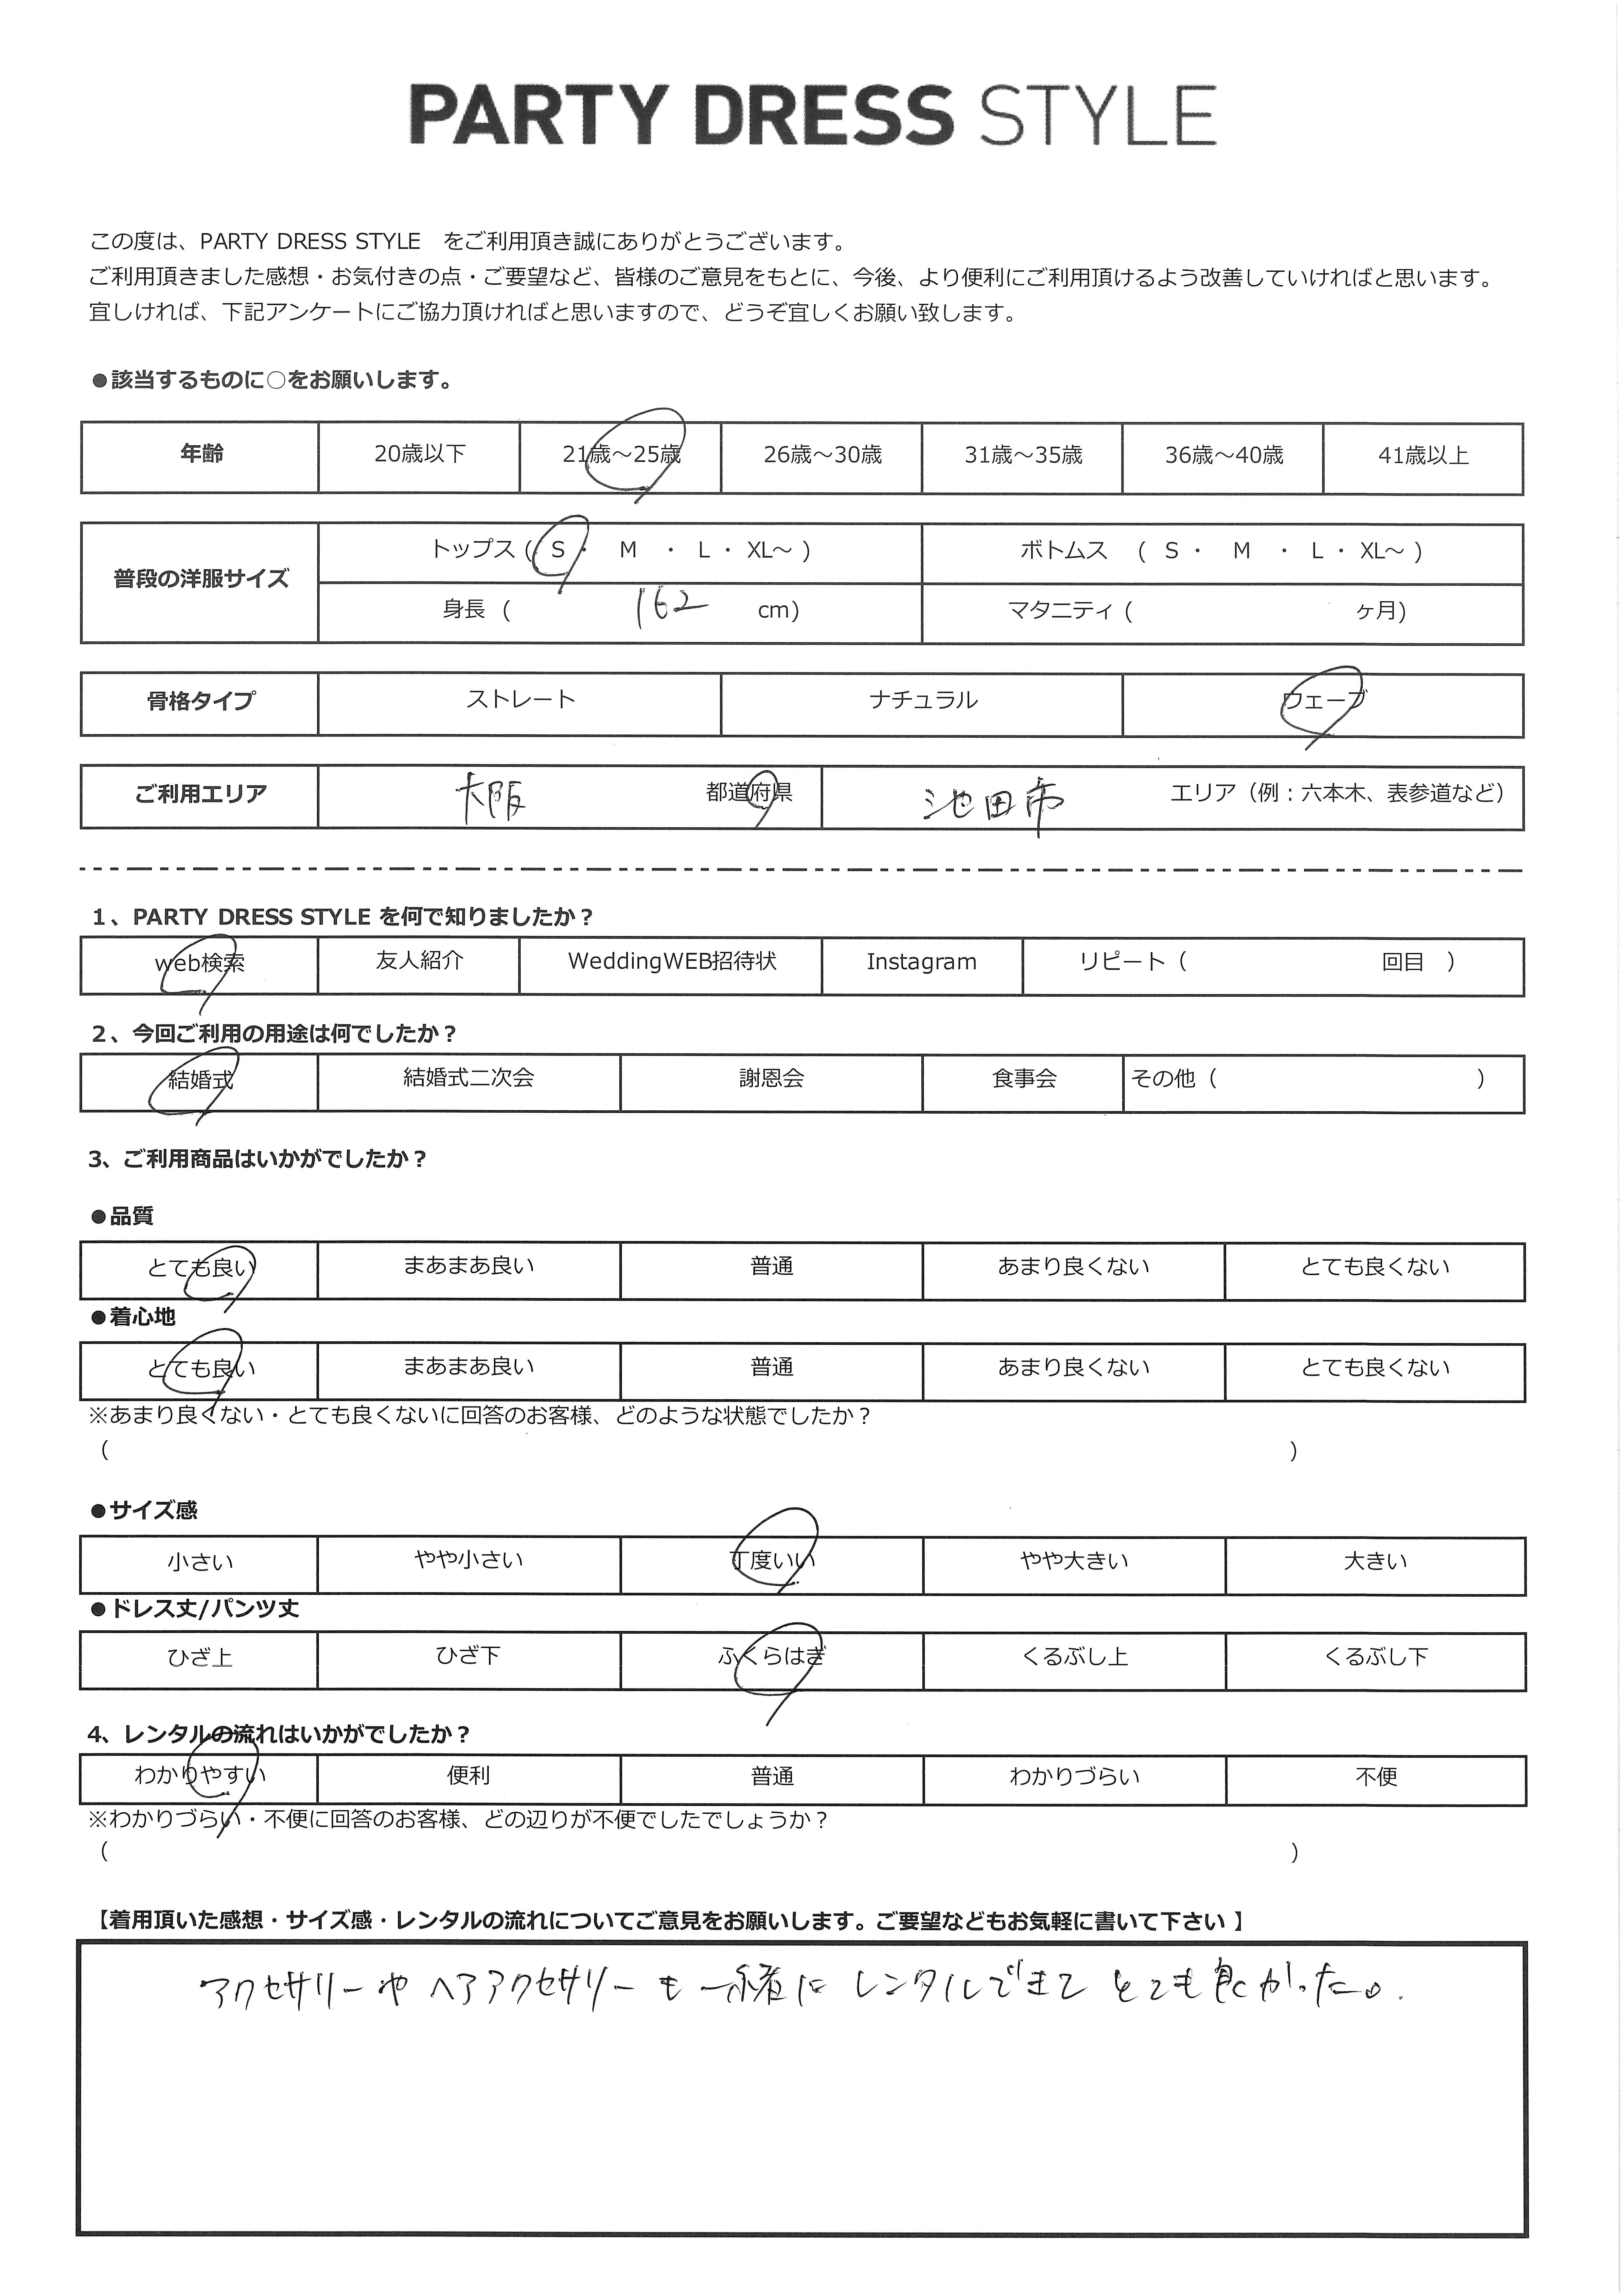 PARTY DRESS STYLE
この度は、PARTY DRESS STYLE　をご利用頂き誠にありがとうございます。
ご利用頂きました感想・お気付きの点・ご要望など、皆様のご意見をもとに、今後、より便利にご利用頂けるよう改善していければと思います。
宜しければ、下記アンケートにご協力頂ければと思いますので、どうぞ宜しくお願い致します。
●該当するものに○をお願いします。
年齢 20歳以下 21歳～25歳 26歳～30歳 31歳～35歳 36歳～40歳 41歳以上
普段の洋服サイズ トップス ( S ・ M ・ L ・ XL～ ) ボトムス ( S ・ M ・ L ・ XL～ )
身長 ( 162 cm) マタニティ ( ヶ月)
骨格タイプ ストレート ナチュラル ウェーブ
ご利用エリア 大阪 都道府県 池田市 エリア（例：六本木、表参道など）
1、PARTY DRESS STYLE を何で知りましたか？
web検索 友人紹介 WeddingWEB招待状 Instagram リピート（ 回目 ）
2、今回ご利用の用途は何でしたか？
結婚式 結婚式二次会 謝恩会 食事会 その他（ ）
3、ご利用商品はいかがでしたか？
●品質
とても良い まあまあ良い 普通 あまり良くない とても良くない
●着心地
とても良い まあまあ良い 普通 あまり良くない とても良くない
※あまり良くない・とても良くないに回答のお客様、どのような状態でしたか？
（ ）
●サイズ感
小さい やや小さい 丁度いい やや大きい 大きい
●ドレス丈/パンツ丈
ひざ上 ひざ下 ふくらはぎ くるぶし上 くるぶし下
4、レンタルの流れはいかがでしたか？
わかりやすい 便利 普通 わかりづらい 不便
※わかりづらい・不便に回答のお客様、どの辺りが不便でしたでしょうか？
（ ）
【着用頂いた感想・サイズ感・レンタルの流れについてご意見をお願いします。ご要望などもお気軽に書いて下さい 】
アクセサリーや ヘアアクセサリーも 一緒に レンタルできて とても良かった。